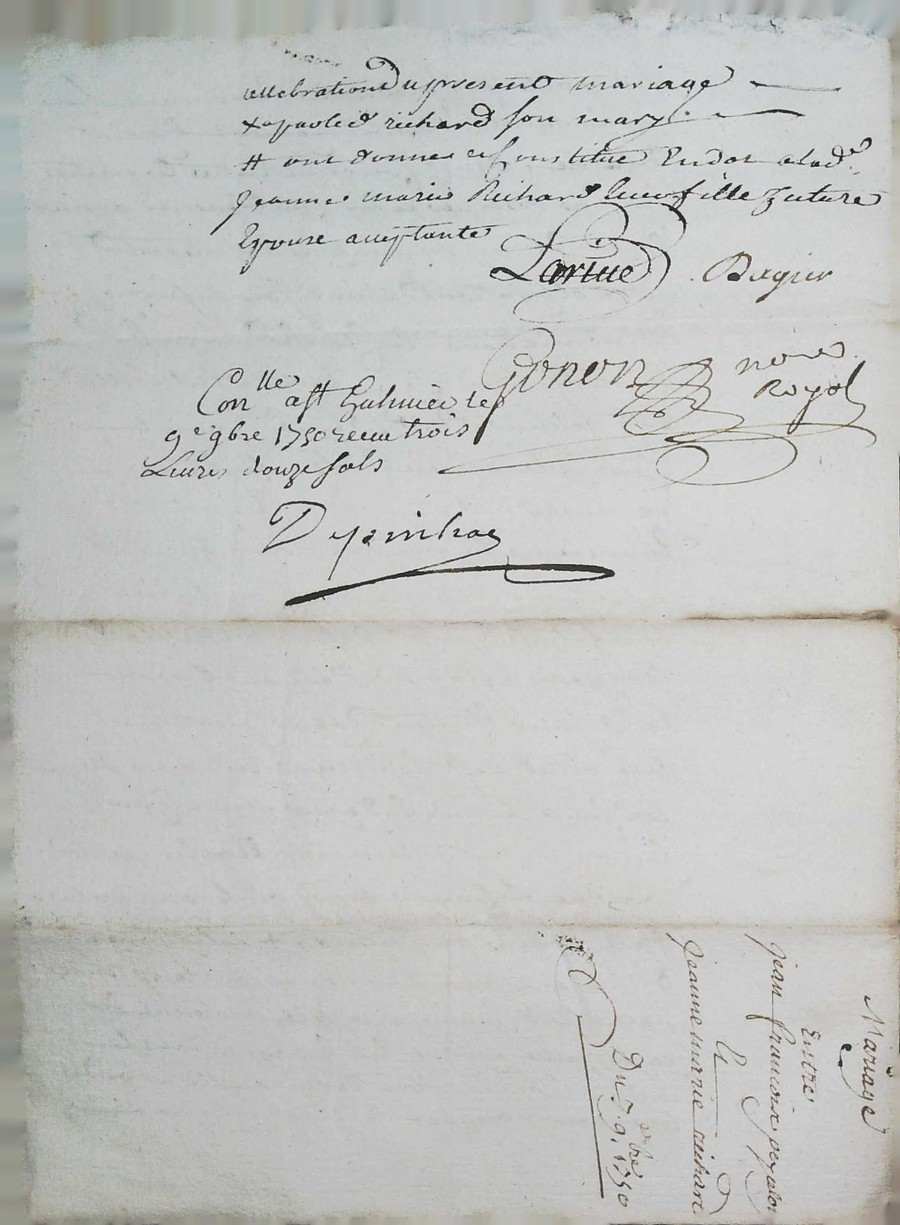 cellebration Du present mariage
x apaoled richard son mary
# ont donné et Constitué En dot a lad.e
jeanne marie Richard leur fille future
Epouse acceptante
Larüe Bagier
Gonon no.re
Royal
Con.lle a st Galmier le
9e 9bre 1750 receu trois
Livres douze sols
Depinhac
Mariage
Entre
jean francoix peyalon
Et
jeanne marie richard
Du 7. 9.bre 1750